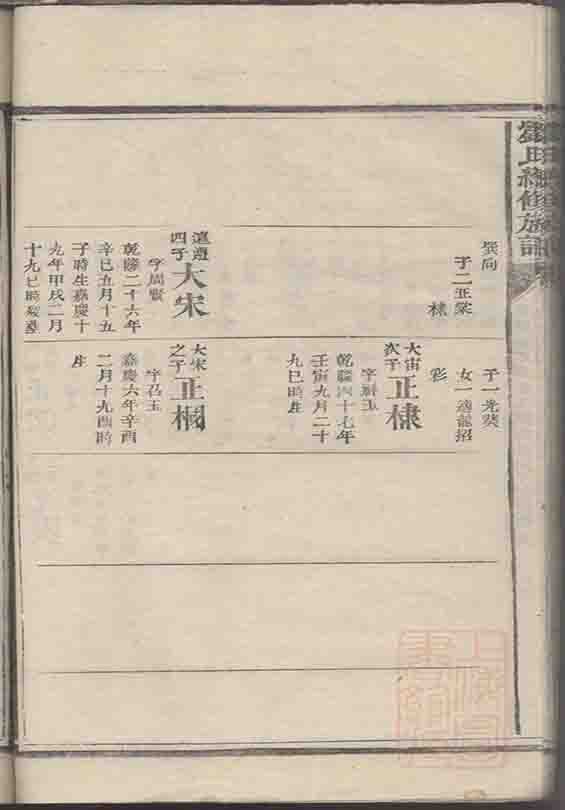 巽向
子二正棠
棣
遠遵
四子
大宋
字周賢
乾隆二十六年
辛巳五月十五
子時生嘉慶十
九年甲戌二月
十九巳時歿塟
子一光葵
女一適龍招
彩
大宙
次子
正棣
乾隆四十七年
壬寅九月二十
九巳時生
大宋
之子
正棡
字召玉
嘉慶六年辛酉
二月十九酉時
生